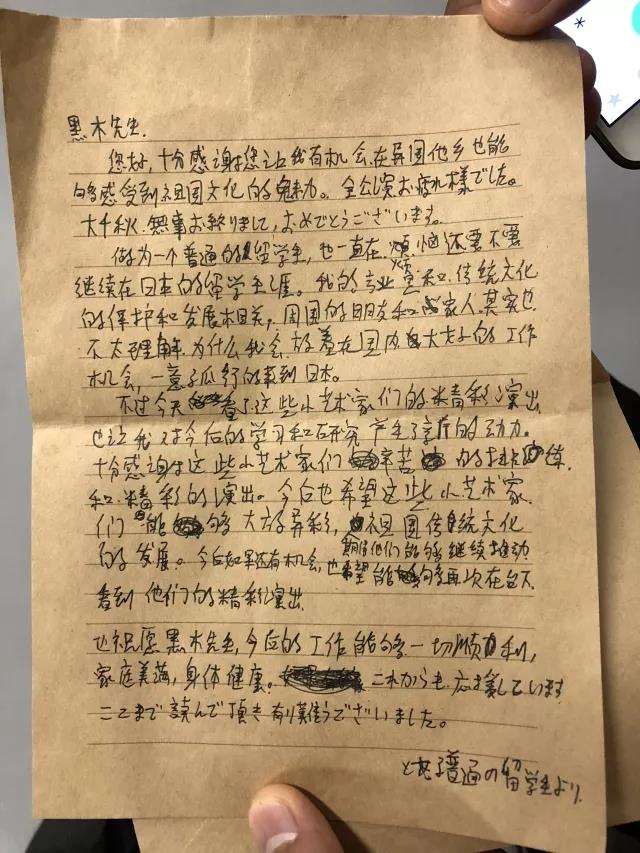 黒木先生.
您好,十分感谢您让我有机会在异国他乡也能
够感受到祖国文化的魅力。全公演お疲れ様でした。
大千秋.無事お終りまして,おめでとうございます。
做为一个普通的留学生,也一直在烦恼还要不要
继续在日本的留学生涯。我的专业是和传统文化
的保护和发展相关,周围的朋友和家人其实也
不太理解为什么我会放着在国内大好的工作
机会,一意孤行的来到日本。
不过今天看了这些小艺术家们的精彩演出
也让我对今后的学习和研究产生了的动力。
十分感谢这些小艺术家们辛苦的排练
和精彩的演出。今后也希望这些小艺术家
们能够大放异彩,祖国传统文化
的发展。今后如果还有机会,也希望能够再次在台下
期待他们能够继续推动
看到他们的精彩演出
也祝愿黑木先生,今后的工作能够一切顺利,
家庭美满,身体健康。これからも応援しています
ここまで読んで頂き有り難うございました。
とある普通の留学生より.